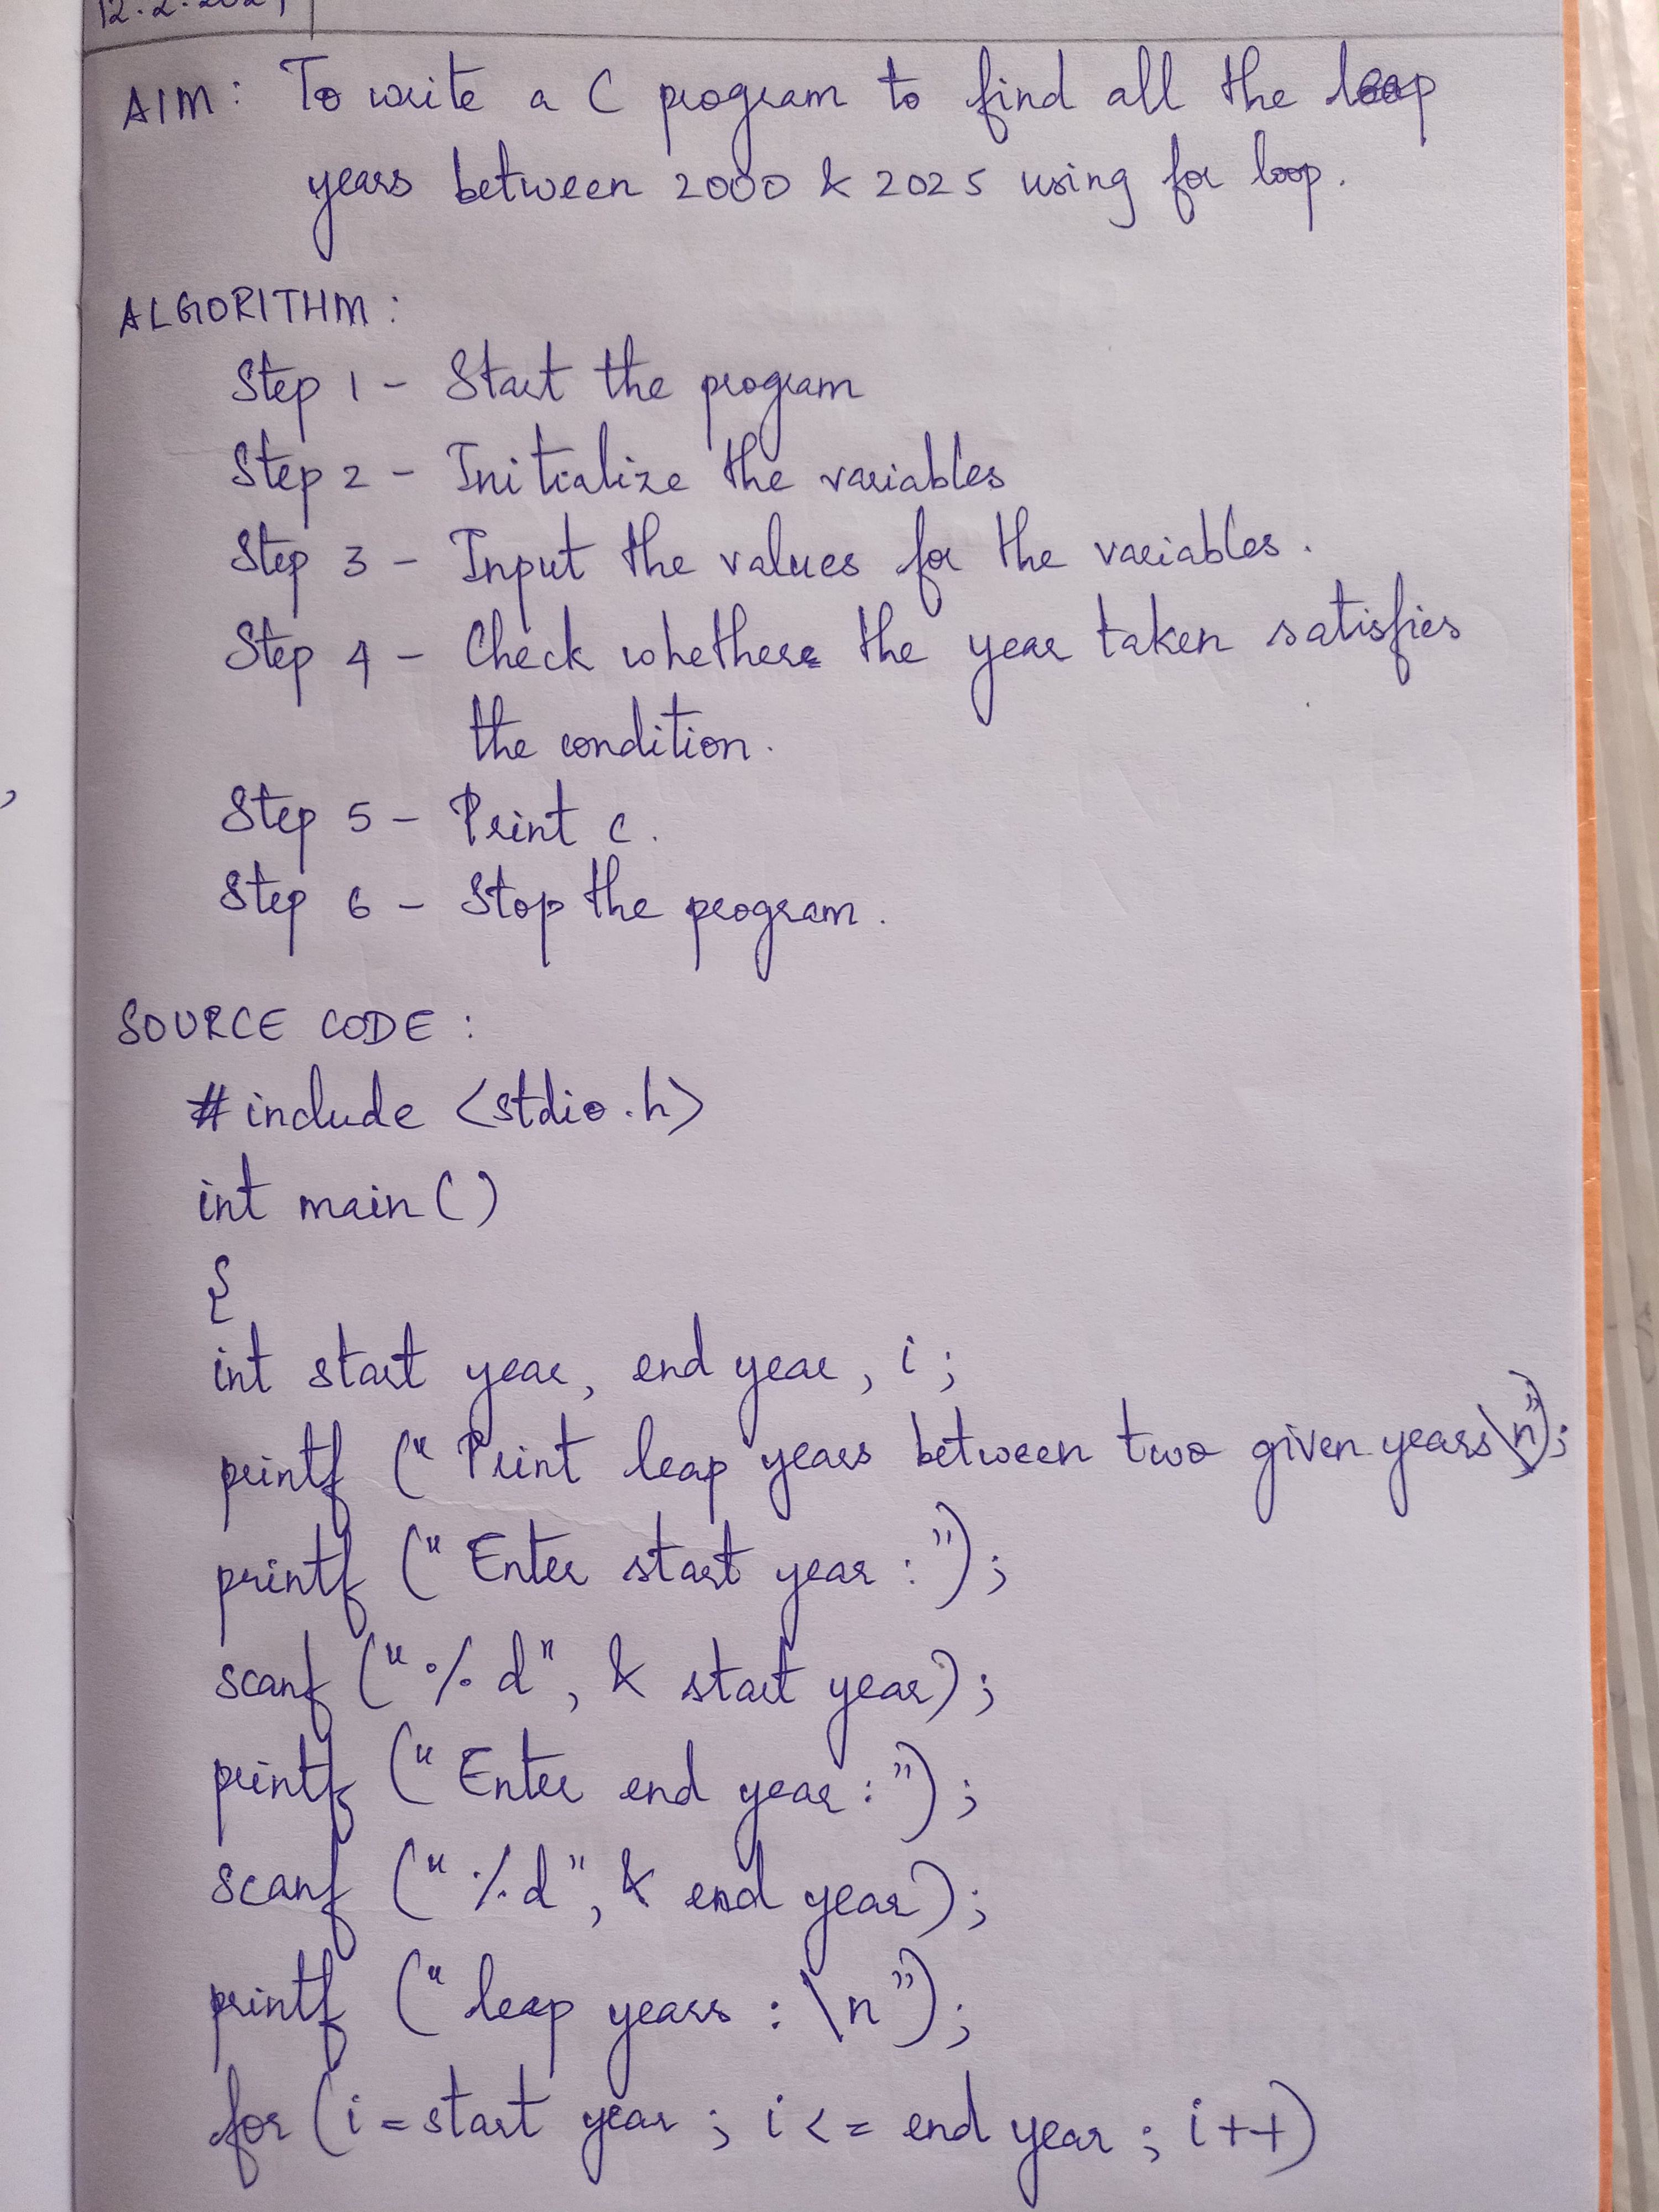 AIM: To write a C program to find all the leap
years between 2000 & 2025 using for loop.
ALGORITHM:
Step 1 - Start the program
Step 2 - Initialize the variables
Step 3 - Input the values for the variables.
Step 4 - Check whether the year taken satisfies
the condition.
Step 5 - Print c.
Step 6 - Stop the program.
SOURCE CODE:
#include <stdio.h>
int main()
{
int start year, end year, i;
printf ("Print leap years between two given years\n");
printf ("Enter start year:");
scanf ("%d", & start year);
printf ("Enter end year:");
scanf ("%d", & end year);
printf ("leap years:\n");
for (i=start year; i<= end year; i++)